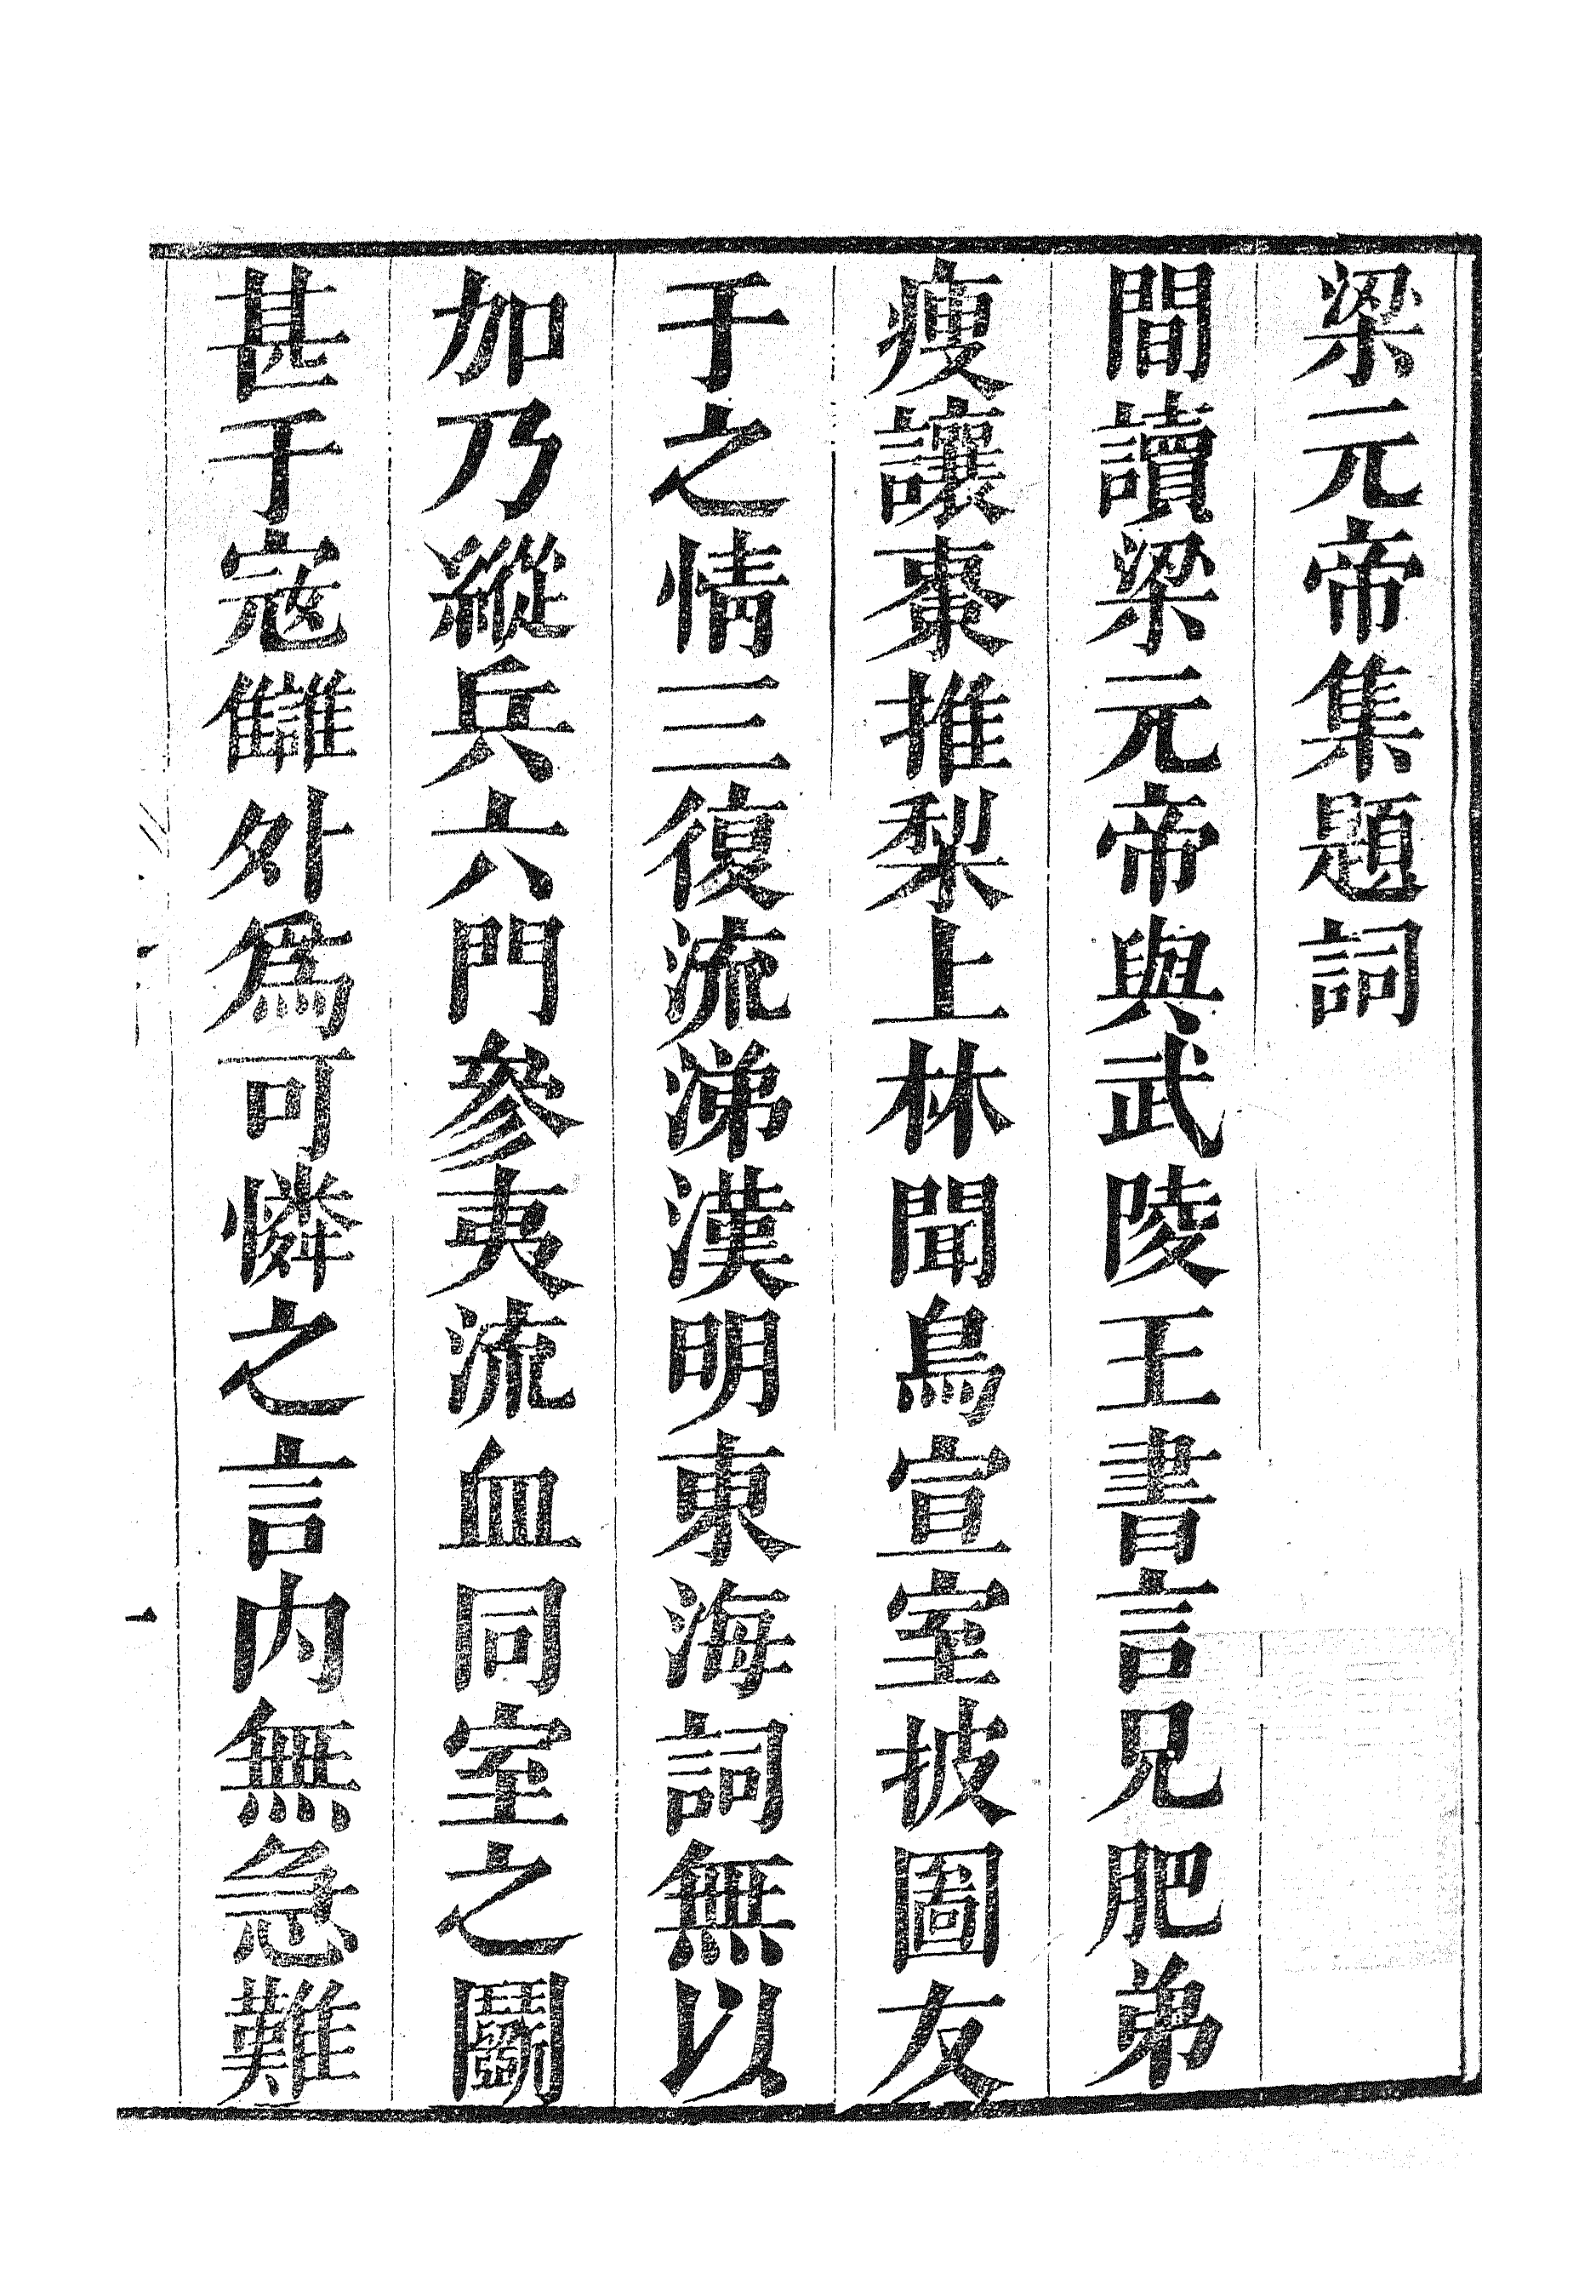 梁元帝集題詞
間讀梁元帝與武陵王書言兄肥弟
瘦讓棗推梨上林聞鳥宣室披圖友
于之情三復流涕漢明東海詞無以
加乃縱兵六門參夷流血同室之鬭
甚于宼讎外爲可憐之言内無急難